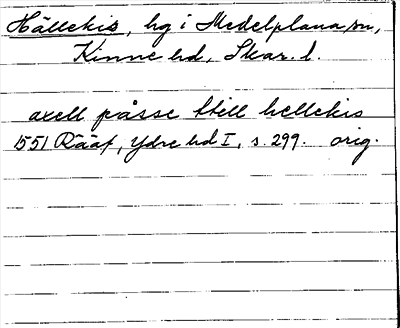 Hällekis, hg i Medelplana sn,
Kinne hd, Skar. l.
axell påsse till hellekis
1551 Rääf, Ydre hd I, s. 299. orig.